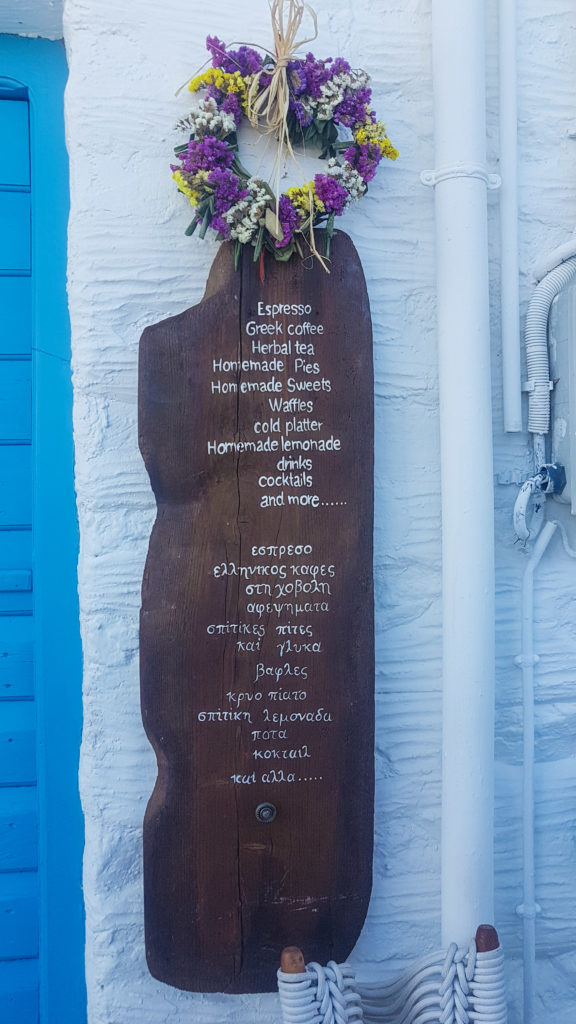 Espresso
Greek coffee
Herbal tea
Homemade Pies
Homemade Sweets
Waffles
cold platter
Homemade lemonade
drinks
cocktails
and more......
εσπρεσο
ελληνικος καφες
στη χοβολη
αφεψηματα
σπιτικες πιτες
και γλυκα
βαφλες
κρυο πιατο
σπιτικη λεμοναδα
ποτα
κοκταιλ
και αλλα.....